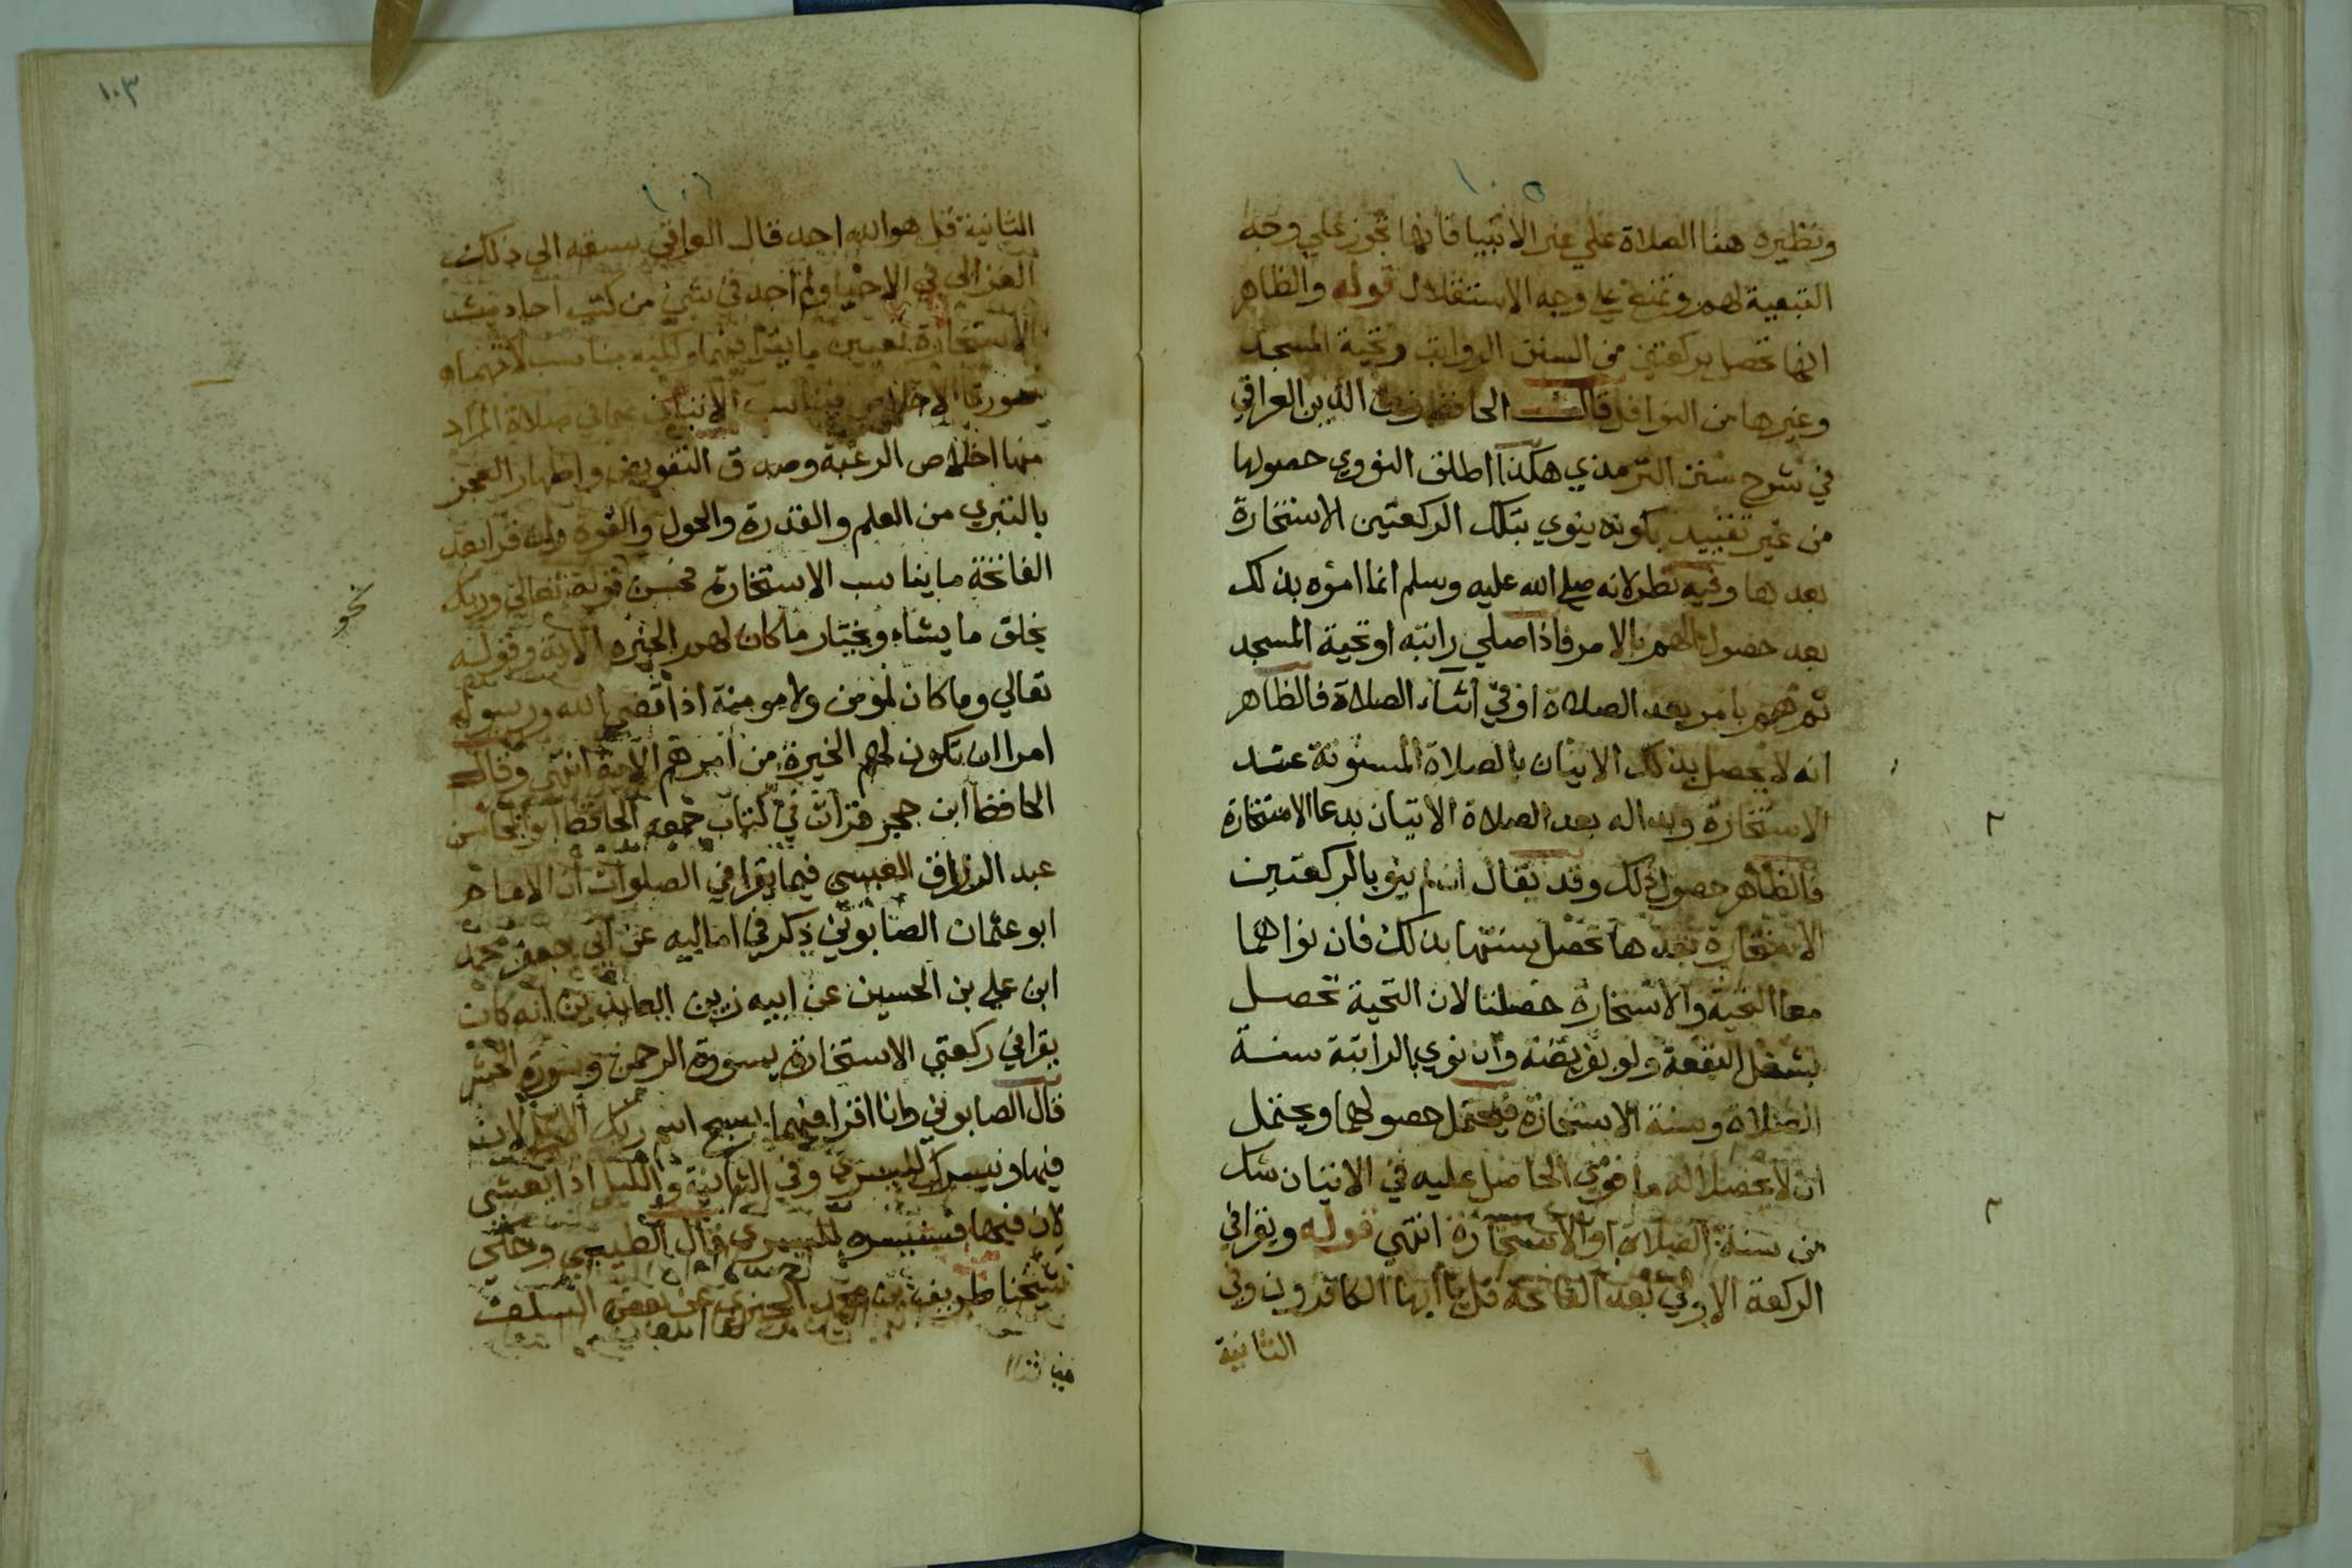 ١٠٥
ونظيره هنا الصلاة علي غير الانبيا فانها تجوز علي وجه
التبعية لهم وتمنع علي وجه الاستقلال قوله والظاهر
انها تحصل بركعتين من السنن الرواتب وتحية المسجد
وغيرها من النوافل قال الحافظ زين الدين العراقي
في شرح سنن الترمذي هكذا اطلق النووي حصولها
من غير تقييد بكونه ينوي بتلك الركعتين الاستخارة
بعدها وفيه نظر لانه صلي الله عليه وسلم انما امره بذلك
بعد حصول الهم بالامر فاذا صلي راتبه او تحية المسجد
ثم هم بامر بعد الصلاة او في اثناء الصلاة فالظاهر
انه لا يحصل بذلك الاتيان بالصلاة المسنونة عند
الاستخارة وبداله بعد الصلاة الاتيان بدعا الاستخارة
فالظاهر حصول ذلك وقد يقال ان لم ينو بالركعتين
الاستخارة بعدها تحصل سنتها بذلك فان نواهما
معا التحية والاستخارة حصلتا لان التحية تحصل
بشغل البقعة ولو بفريضة وان نوي بالراتبة سنة
الصلاة وسنة الاستخارة فيحتمل حصولهما ويحتمل
ان لا يحصل له ما نوي الحاصل عليه في الاتيان شك
من سنة الصلاة او الاستخارة انتهي قوله ويقرا في
الركعة الاولي بعد الفاتحة قل يا ايها الكافرون وفي
الثانية
١٠٣
١٠٦
الثانية قل هو الله احد قال العراقي سبقه الى ذلك
الغزالى في الاحيا ولم اجد في شيئ من كتب احاديث
الاستخارة تعيين ما يقرا فيهما ولكنه مناسب لانهما
سورتا الاخلاص فيناسب الاتيان بهما في صلاة المراد
منها اخلاص الرغبة وصدق التفويض واظهار العجز
بالتبري من العلم والقدرة والحول والقوة ولو قرا بعد
الفاتحة ما يناسب الاستخارة فحسن قوله تعالي وربك
يخلق ما يشاء ويختار ما كان لهم الخيره الاية وقوله
نحو
تعالي وما كان لمؤمن ولا مومنة اذا قضى الله ورسوله
امرا ان تكون لهم الخيرة من امرهم الاية انتهى وقال
الحافظ ابن حجر قرات في كتاب جمعه الحافظ ابو المحاسن
عبد الرزاق العبسي فيما يقرا في الصلوات ان الامام
ابو عثمان الصابوني ذكر في اماليه عن ابي جعفر محمد
ابن علي بن الحسين عن ابيه زين العابدين انه كان
يقرا في ركعتي الاستخارة بسورة الرحمن وسورة الحشر
قال الصابوني وانا اقرا فيهما بسبح اسم ربك الاعلى لان
فيها ونيسرك لليسري وفي الثانية والليل اذا يغشى
لان فيها فسنيسره لليسري قال الطيبي وحكي
شيخنا طريف بن محمد عن بعض السلف